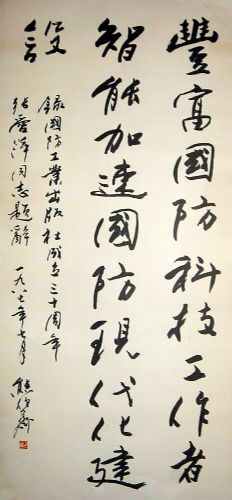 豐富國防科技工作者
智能加速國防現代化建
設
錄國防工業出版社成立三十周年
張愛萍同志題辭 一九八七年七月 熊伯齊